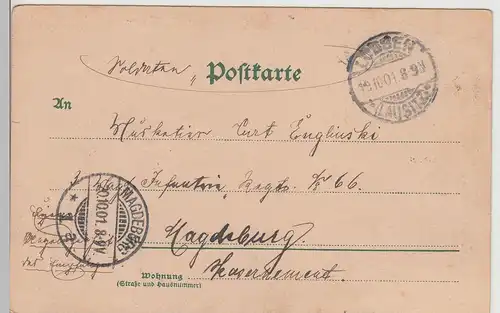 Soldaten „ Postkarte
LÜBBEN
10.01. 8-9V
(LAUSITZ)
An
Musketier Curt Englinski
Infanterie Regts. № 66
MAGDEBURG
10.10.01. 8-9V
* a
Magdeburg.
des Empfängers
Wohnung
(Straße und Hausnummer)
Kasernement.